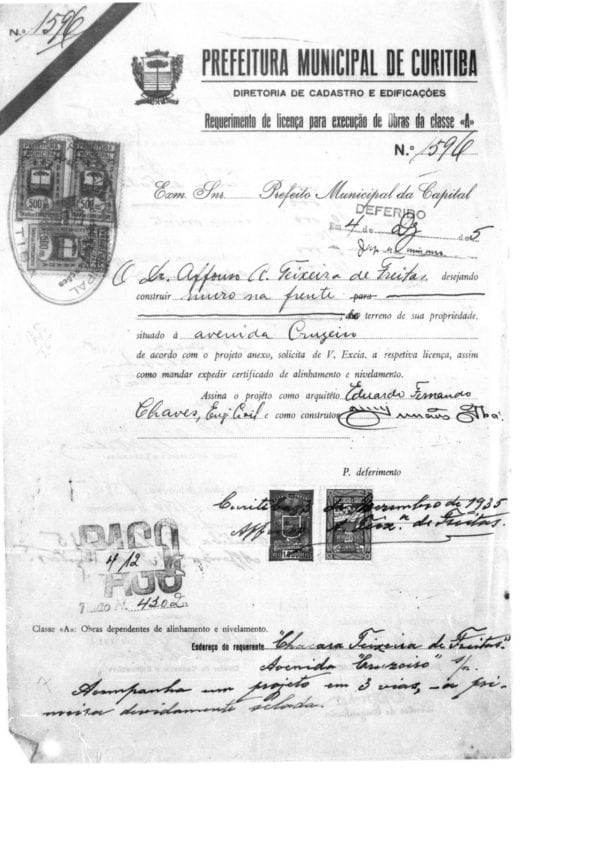 N.º 1596
PREFEITURA MUNICIPAL DE CURITIBA
DIRETORIA DE CADASTRO E EDIFICAÇÕES
Requerimento de licença para execução de Obras da classe «A»
N.º 1596
PREFEITURA MUNICIPAL
500 500
Exm. Snr. Prefeito Municipal da Capital
DEFERIDO
Em 4 de Dz de 5
O Dr. Affonso A. Teixeira de Freitas, desejando
construir muro na frente para
terreno de sua propriedade,
situado á avenida Cruzeiro
de acordo com o projeto anexo, solicita de V. Excia. a respetiva licença, assim
como mandar expedir certificado de alinhamento e nivelamento.
Assina o projéto como arquitéto Eduardo Fernando
Chaves, Eng. Civil e como construtor
P. deferimento
Curitiba, 3 de Dezembro de 1935
Affonso A. Teix.ra de Freitas.
PAGO
4/12
Classe «A»: Obras dependentes de alinhamento e nivelamento.
Endereço do requerente "Chacara Teixeira de Freitas"
Avenida "Cruzeiro" s/n.
Acompanha um projeto em 3 vias, - a pri-
meira devidamente selada.